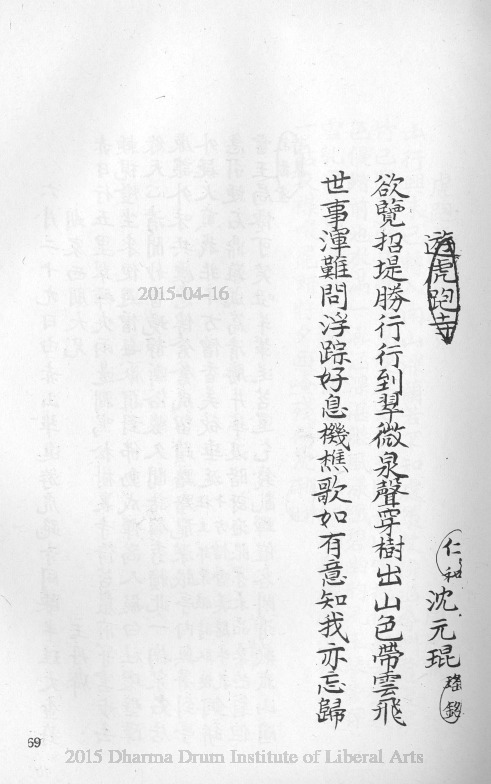 遊虎跑寺
仁和沈元琨瑤銘
欲覽招堤勝行行到翠微泉聲穿樹出山色帶雲飛
世事渾難問浮踪好息機樵歌如有意知我亦忘歸
2015-04-16
69
2015 Dharma Drum Institute of Liberal Arts